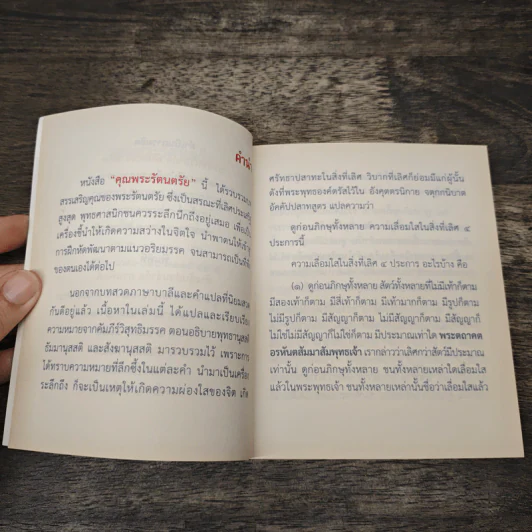 คำนำ
หนังสือ “คุณพระรัตนตรัย” นี้ ได้รวบรวมบท
สรรเสริญคุณของพระรัตนตรัย ซึ่งเป็นสรณะที่เลิศประเสริฐ
สูงสุด พุทธศาสนิกชนควรระลึกนึกถึงอยู่เสมอ เพื่อเป็น
เครื่องชี้นำให้เกิดความสว่างในจิตใจ นำพาตนให้เข้า
การฝึกหัดพัฒนาตามแนวอริยมรรค จนสามารถเป็นที่พึ่ง
ของตนเองได้ต่อไป
นอกจากบทสวดภาษาบาลีและคำแปลที่นิยมสวด
กันดีอยู่แล้ว เนื้อหาในเล่มนี้ ได้แปลและเรียบเรียง
ความหมายจากคัมภีร์วิสุทธิมรรค ตอนอธิบายพุทธานุสสติ
ธัมมานุสสติ และสังฆานุสสติ มารวบรวมไว้ เพราะการ
ได้ทราบความหมายที่ลึกซึ้งในแต่ละคำ นำมาเป็นเครื่อง
ระลึกถึง ก็จะเป็นเหตุให้เกิดความผ่องใสของจิต เกิด
ศรัทธาปสาทะในสิ่งที่เลิศ วิบากที่เลิศก็ย่อมมีแก่ผู้นั้น
ดังที่พระพุทธองค์ตรัสไว้ใน อังคุตตรนิกาย จตุกกนิบาต
อัคคัปปสาทสูตร แปลความว่า
ดูก่อนภิกษุทั้งหลาย ความเลื่อมใสในสิ่งที่เลิศ ๔
ประการนี้
ความเลื่อมใสในสิ่งที่เลิศ ๔ ประการ อะไรบ้าง คือ
(๑) ดูก่อนภิกษุทั้งหลาย สัตว์ทั้งหลายที่ไม่มีเท้าก็ตาม
มีสองเท้าก็ตาม มีสี่เท้าก็ตาม มีเท้ามากก็ตาม มีรูปก็ตาม
ไม่มีรูปก็ตาม มีสัญญาก็ตาม ไม่มีสัญญาก็ตาม มีสัญญาก็
ไม่ใช่ไม่มีสัญญาก็ไม่ใช่ก็ตาม มีประมาณเท่าใด พระตถาคต
อรหันตสัมมาสัมพุทธเจ้า เรากล่าวว่าเลิศกว่าสัตว์มีประมาณ
เท่านั้น ดูก่อนภิกษุทั้งหลาย ชนทั้งหลายเหล่าใดเลื่อมใส
แล้วในพระพุทธเจ้า ชนทั้งหลายเหล่านั้นชื่อว่าเลื่อมใสแล้ว